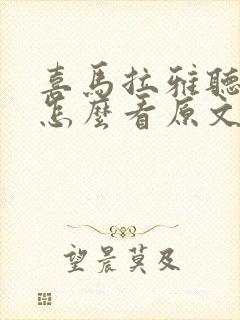 喜馬拉雅聽
怎麼看原文
望晨莫及